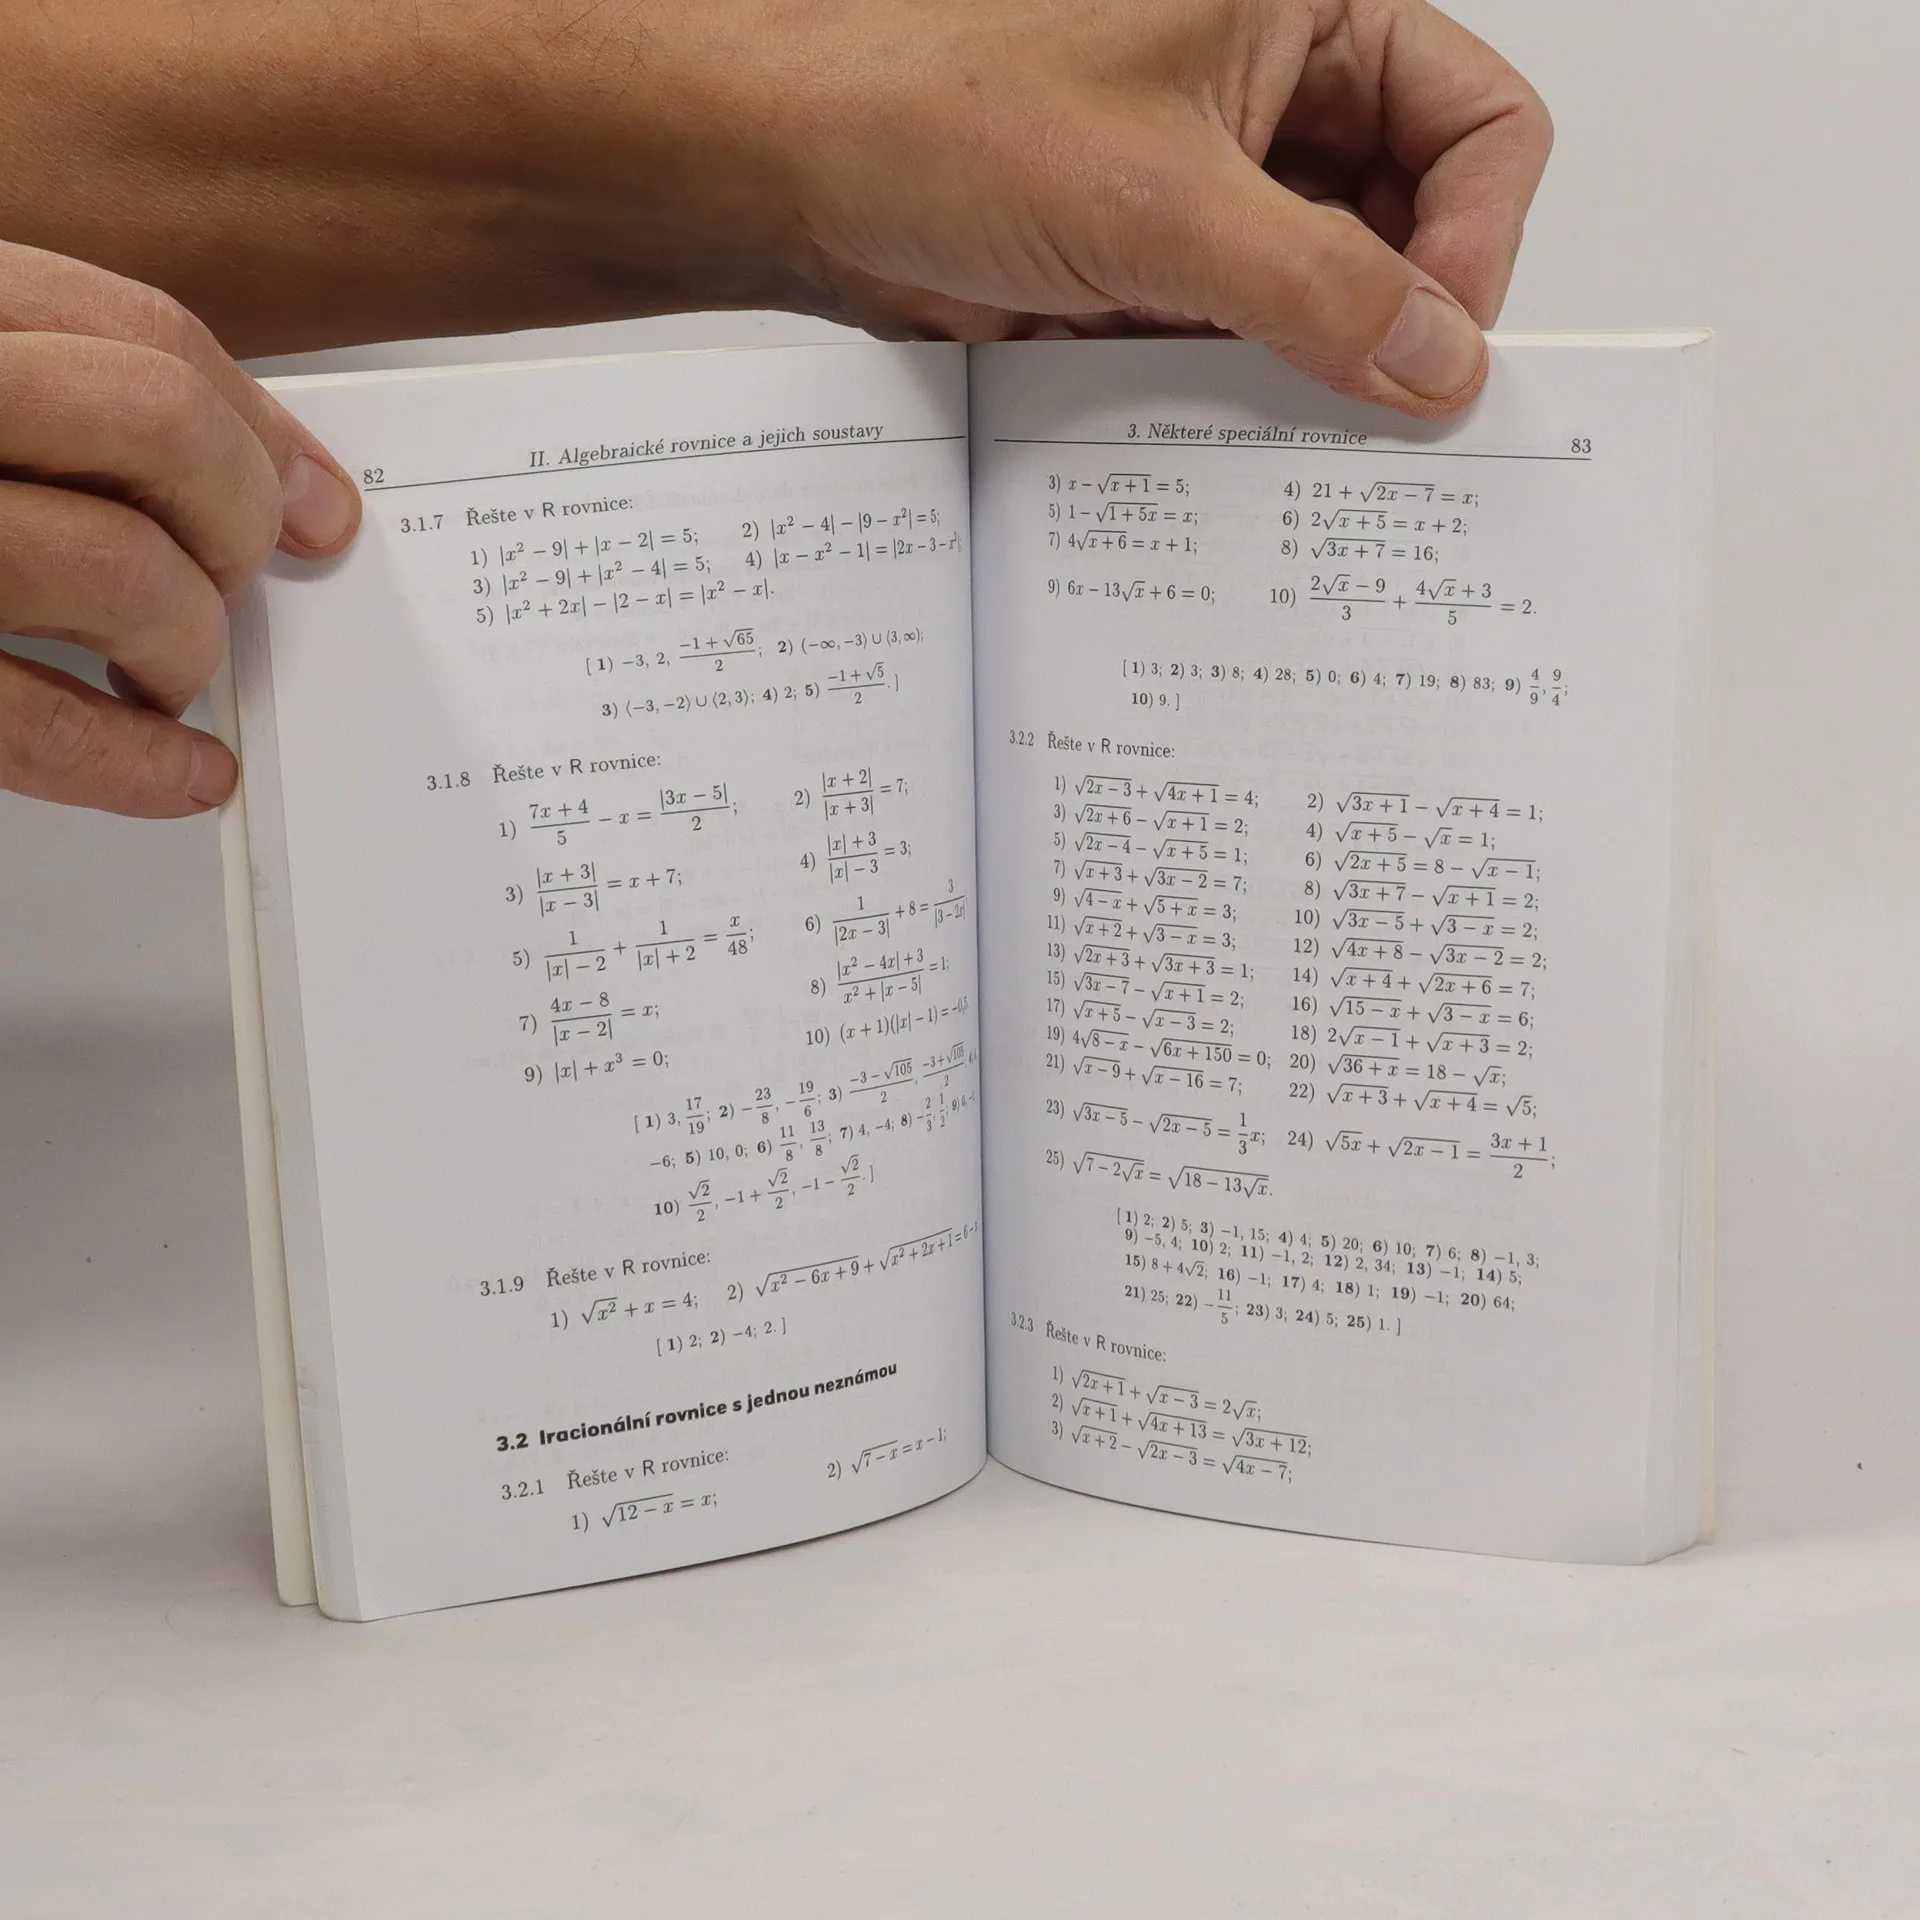 82
II. Algebraické rovnice a jejich soustavy
3.1.7 Řešte v R rovnice:
1) |x² − 9| + |x − 2| = 5; 2) |x² − 4| − |9 − x²| = 5;
3) |x² − 9| + |x² − 4| = 5; 4) |x − x² − 1| = |2x − 3 − x²|;
5) |x² + 2x| − |2 − x| = |x² − x|.
[ 1) −3, 2, (−1 + √65)/2; 2) (−∞, −3⟩ ∪ ⟨3, ∞);
3) ⟨−3, −2⟩ ∪ ⟨2, 3⟩; 4) 2; 5) (−1 + √5)/2. ]
3.1.8 Řešte v R rovnice:
1) (7x + 4)/5 − x = |3x − 5|/2; 2) |x + 2|/|x + 3| = 7;
3) |x + 3|/|x − 3| = x + 7; 4) (|x| + 3)/(|x| − 3) = 3;
5) 1/(|x| − 2) + 1/(|x| + 2) = x/48; 6) 1/|2x − 3| + 8 = 3/|3 − 2x|
7) (4x − 8)/|x − 2| = x; 8) (|x² − 4x| + 3)/(x² + |x − 5|) = 1;
9) |x| + x³ = 0; 10) (x + 1)(|x| − 1) = −0,5.
[ 1) 3, 17/19; 2) −23/8, −19/6; 3) (−3 − √105)/2, (−3 + √105)/2
−6; 5) 10, 0; 6) 11/8, 13/8; 7) 4, −4; 8) −2/3, 1/2; 9) 0, −1;
10) √2/2, −1 + √2/2, −1 − √2/2. ]
3.1.9 Řešte v R rovnice:
1) √(x²) + x = 4; 2) √(x² − 6x + 9) + √(x² + 2x + 1) = 6 −
[ 1) 2; 2) −4; 2. ]
3.2 Iracionální rovnice s jednou neznámou
3.2.1 Řešte v R rovnice:
1) √(12 − x) = x; 2) √(7 − x) = x − 1;
3. Některé speciální rovnice
83
3) x − √(x + 1) = 5; 4) 21 + √(2x − 7) = x;
5) 1 − √(1 + 5x) = x; 6) 2√(x + 5) = x + 2;
7) 4√(x + 6) = x + 1; 8) √(3x + 7) = 16;
9) 6x − 13√x + 6 = 0; 10) (2√x − 9)/3 + (4√x + 3)/5 = 2.
[ 1) 3; 2) 3; 3) 8; 4) 28; 5) 0; 6) 4; 7) 19; 8) 83; 9) 4/9, 9/4;
10) 9. ]
3.2.2 Řešte v R rovnice:
1) √(2x − 3) + √(4x + 1) = 4; 2) √(3x + 1) − √(x + 4) = 1;
3) √(2x + 6) − √(x + 1) = 2; 4) √(x + 5) − √x = 1;
5) √(2x − 4) − √(x + 5) = 1; 6) √(2x + 5) = 8 − √(x − 1);
7) √(x + 3) + √(3x − 2) = 7; 8) √(3x + 7) − √(x + 1) = 2;
9) √(4 − x) + √(5 + x) = 3; 10) √(3x − 5) + √(3 − x) = 2;
11) √(x + 2) + √(3 − x) = 3; 12) √(4x + 8) − √(3x − 2) = 2;
13) √(2x + 3) + √(3x + 3) = 1; 14) √(x + 4) + √(2x + 6) = 7;
15) √(3x − 7) − √(x + 1) = 2; 16) √(15 − x) + √(3 − x) = 6;
17) √(x + 5) − √(x − 3) = 2; 18) 2√(x − 1) + √(x + 3) = 2;
19) 4√(8 − x) − √(6x + 150) = 0; 20) √(36 + x) = 18 − √x;
21) √(x − 9) + √(x − 16) = 7; 22) √(x + 3) + √(x + 4) = √5;
23) √(3x − 5) − √(2x − 5) = 1/3 x; 24) √(5x) + √(2x − 1) = (3x + 1)/2;
25) √(7 − 2√x) = √(18 − 13√x).
[ 1) 2; 2) 5; 3) −1, 15; 4) 4; 5) 20; 6) 10; 7) 6; 8) −1, 3;
9) −5, 4; 10) 2; 11) −1, 2; 12) 2, 34; 13) −1; 14) 5;
15) 8 + 4√2; 16) −1; 17) 4; 18) 1; 19) −1; 20) 64;
21) 25; 22) −11/5; 23) 3; 24) 5; 25) 1. ]
3.2.3 Řešte v R rovnice:
1) √(2x + 1) + √(x − 3) = 2√x;
2) √(x + 1) + √(4x + 13) = √(3x + 12);
3) √(x + 2) − √(2x − 3) = √(4x − 7);